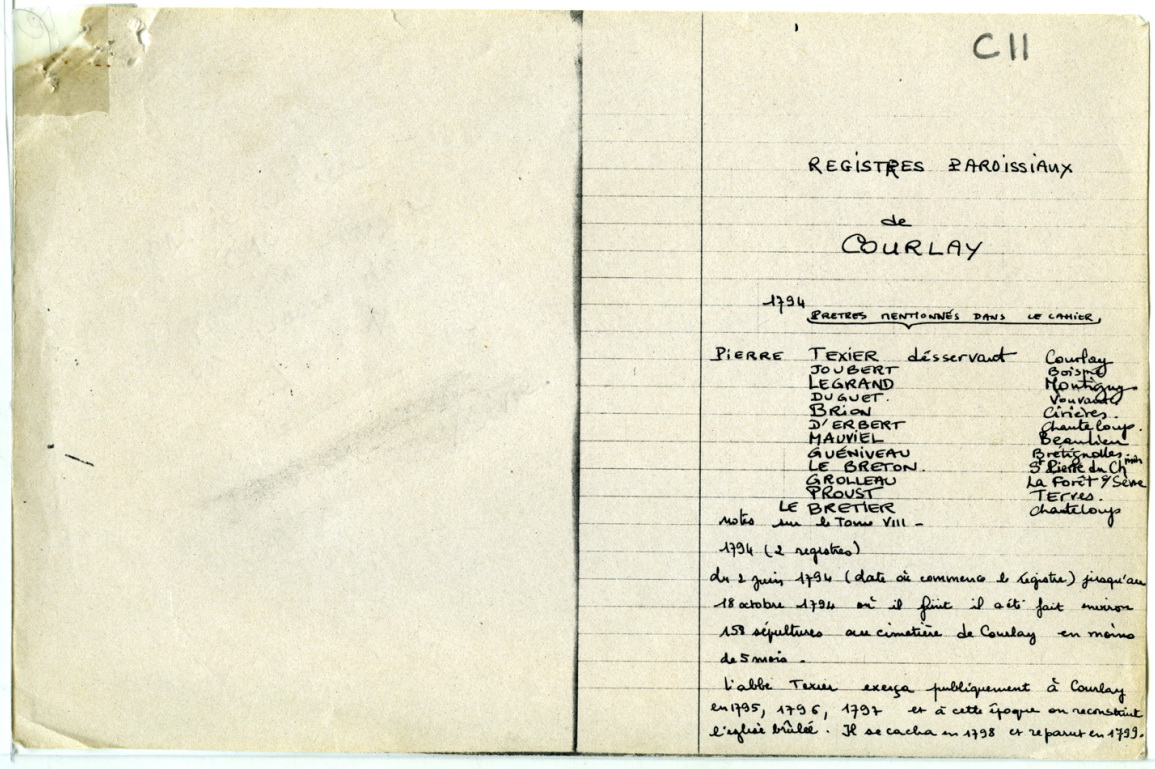 C11
REGISTRES PAROISSIAUX
de
COURLAY
1794
PRETRES MENTIONNÉS DANS LE CAHIER
PIERRE TEXIER désservant Courlay
JOUBERT Boismé
LEGRAND Montigny
DUGUET. Vouvant
BRION Cirières.
D'ERBERT Chanteloup.
MAUVIEL Beaulieu
GUÉNIVEAU Brétignolles
LE BRETON. St Pierre du Chmin
GROLLEAU La Forêt s/Sèvre
PROUST Terves.
LE BRETIER Chanteloup
notes sur le Tome VIII -
1794 (2 registres)
du 2 juin 1794 (date où commence le registre) jusqu'au
18 octobre 1794 où il finit il a été fait environ
158 sépultures au cimetière de Courlay en moins
de 5 mois.
L'abbé Texier exerça publiquement à Courlay
en 1795, 1796, 1797 et à cette époque on reconstruit
l'église brûlée. Il se cacha en 1798 et reparut en 1799.